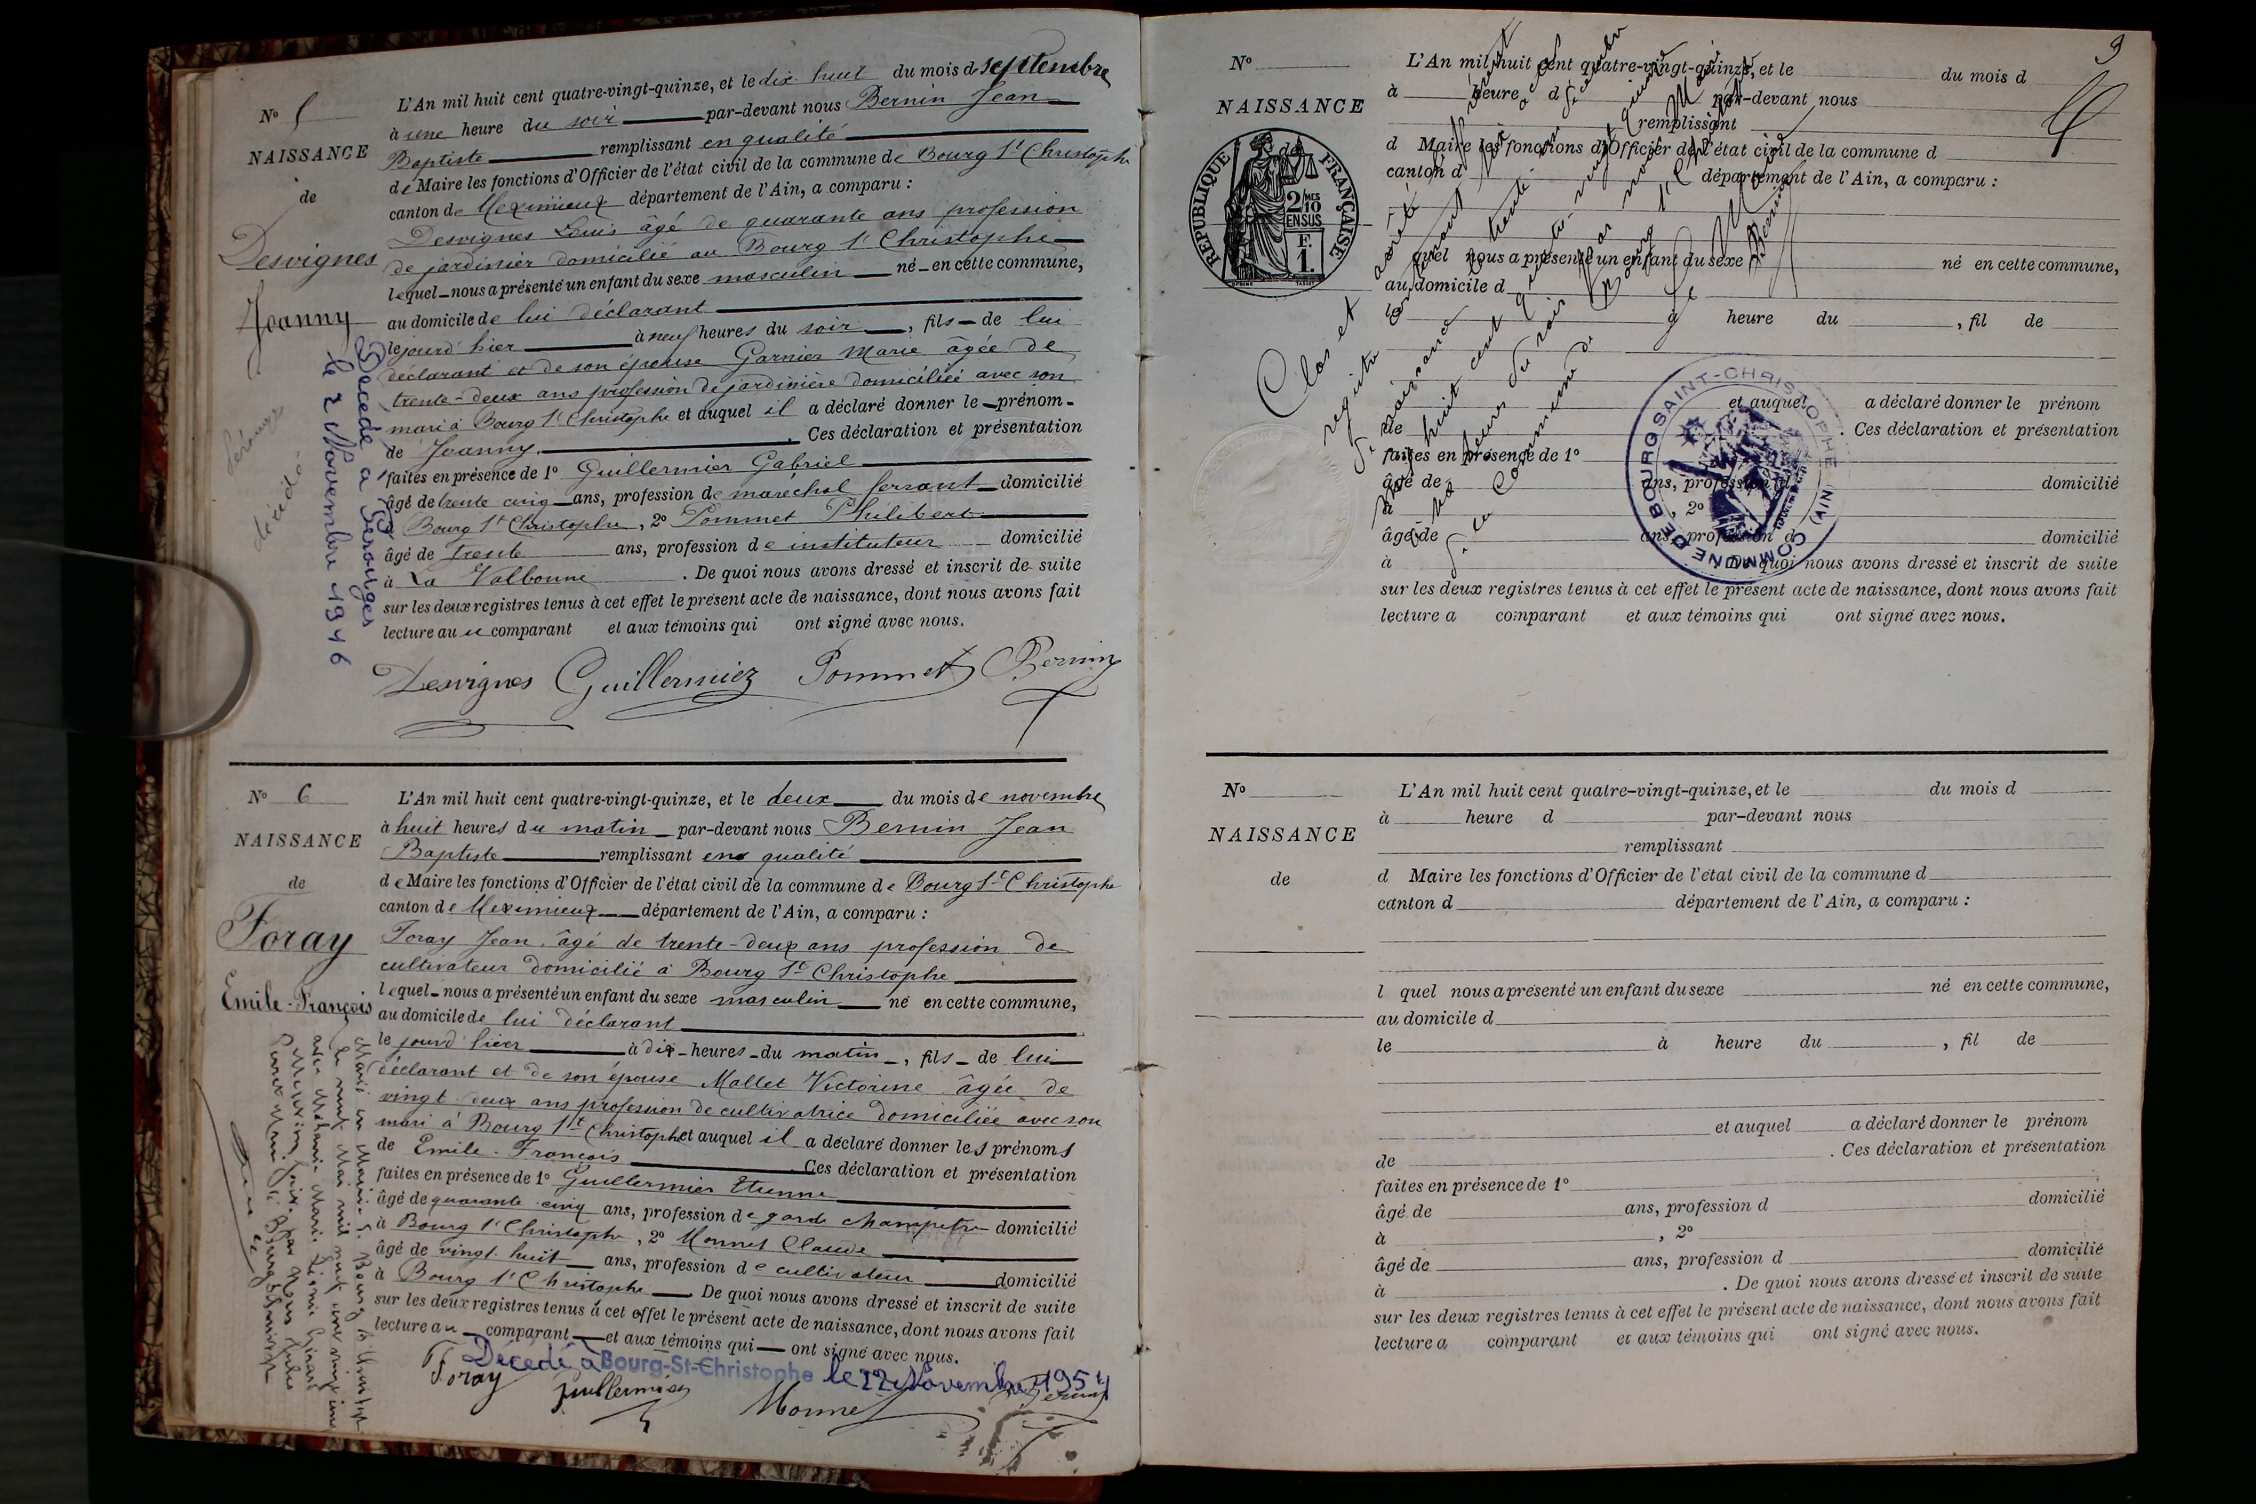 N° 5
NAISSANCE
de
Desvignes
Joanny
L'An mil huit cent quatre-vingt-quinze, et le dix huit du mois de septembre
à une heure du soir par-devant nous Bernin Jean
Baptiste remplissant en qualité
de Maire les fonctions d'Officier de l'état civil de la commune de Bourg St Christophe
canton de Meximieux département de l'Ain, a comparu :
Desvignes Louis âgé de quarante ans profession
de jardinier domicilié au Bourg St Christophe
lequel nous a présenté un enfant du sexe masculin né en cette commune,
au domicile de lui déclarant
le jourd'hier à neuf heures du soir, fils de lui
déclarant et de son épouse Garnier Marie âgée de
trente-deux ans profession de jardinière domiciliée avec son
mari à Bourg St Christophe et auquel il a déclaré donner le prénom
de Joanny. Ces déclaration et présentation
faites en présence de 1° Guillermier Gabriel
âgé de trente cinq ans, profession de maréchal ferrant domicilié
à Bourg St Christophe, 2° Pommet Philibert
âgé de trente ans, profession de instituteur domicilié
à La Valbonne. De quoi nous avons dressé et inscrit de suite
sur les deux registres tenus à cet effet le présent acte de naissance, dont nous avons fait
lecture au comparant et aux témoins qui ont signé avec nous.
Desvignes Guillermier Pommet Bernin
Décédé à Pérouges
le 2 Novembre 1946
Pérouges
décédé
N° 6
NAISSANCE
de
Foray
Emile-François
L'An mil huit cent quatre-vingt-quinze, et le deux du mois de novembre
à huit heures du matin par-devant nous Bernin Jean
Baptiste remplissant en qualité
de Maire les fonctions d'Officier de l'état civil de la commune de Bourg St Christophe
canton de Meximieux département de l'Ain, a comparu :
Foray Jean, âgé de trente-deux ans profession de
cultivateur domicilié à Bourg St Christophe
lequel nous a présenté un enfant du sexe masculin né en cette commune,
au domicile de lui déclarant
le jourd'hier à dix heures du matin, fils de lui
déclarant et de son épouse Mallet Victorine âgée de
vingt deux ans profession de cultivatrice domiciliée avec son
mari à Bourg St Christophe et auquel il a déclaré donner les prénoms
de Emile-François Ces déclaration et présentation
faites en présence de 1° Guillermier Etienne
âgé de quarante cinq ans, profession de garde champêtre domicilié
à Bourg St Christophe, 2° Monnet Claude
âgé de vingt huit ans, profession de cultivateur domicilié
à Bourg St Christophe. De quoi nous avons dressé et inscrit de suite
sur les deux registres tenus à cet effet le présent acte de naissance, dont nous avons fait
lecture au comparant et aux témoins qui ont signé avec nous.
Décédé à Bourg-St-Christophe le 22 Novembre 1954
Foray Guillermier Monnet Bernin
9
N°
NAISSANCE
REPUBLIQUE FRANÇAISE
2/10MES
EN SUS
F.
1.
L'An mil huit cent quatre-vingt-quinze, et le du mois d
à heure d par-devant nous
remplissant
d Maire les fonctions d'Officier de l'état civil de la commune d
canton d département de l'Ain, a comparu :
quel nous a présenté un enfant du sexe né en cette commune,
au domicile d
le à heure du , fil de
et auquel a déclaré donner le prénom
de . Ces déclaration et présentation
faites en présence de 1°
âgé de ans, profession d domicilié
à , 2°
âgé de ans, profession d domicilié
à De quoi nous avons dressé et inscrit de suite
sur les deux registres tenus à cet effet le présent acte de naissance, dont nous avons fait
lecture a comparant et aux témoins qui ont signé avec nous.
Clos et arrêté
registre
naissance
mil huit cent quatre vingt quinze
heures du soir par nous Maire
de la commune de Bourg St Christophe
Le Maire
Bernin
COMMUNE DE BOURG SAINT-CHRISTOPHE (AIN)
N°
NAISSANCE
de
L'An mil huit cent quatre-vingt-quinze, et le du mois d
à heure d par-devant nous
remplissant
d Maire les fonctions d'Officier de l'état civil de la commune d
canton d département de l'Ain, a comparu :
l quel nous a présenté un enfant du sexe né en cette commune,
au domicile d
le à heure du , fil de
et auquel a déclaré donner le prénom
de . Ces déclaration et présentation
faites en présence de 1°
âgé de ans, profession d domicilié
à , 2°
âgé de ans, profession d domicilié
à . De quoi nous avons dressé et inscrit de suite
sur les deux registres tenus à cet effet le présent acte de naissance, dont nous avons fait
lecture a comparant et aux témoins qui ont signé avec nous.